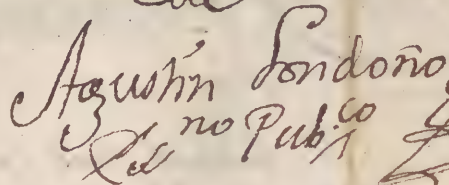 Agustín Londoño
no Pub.co